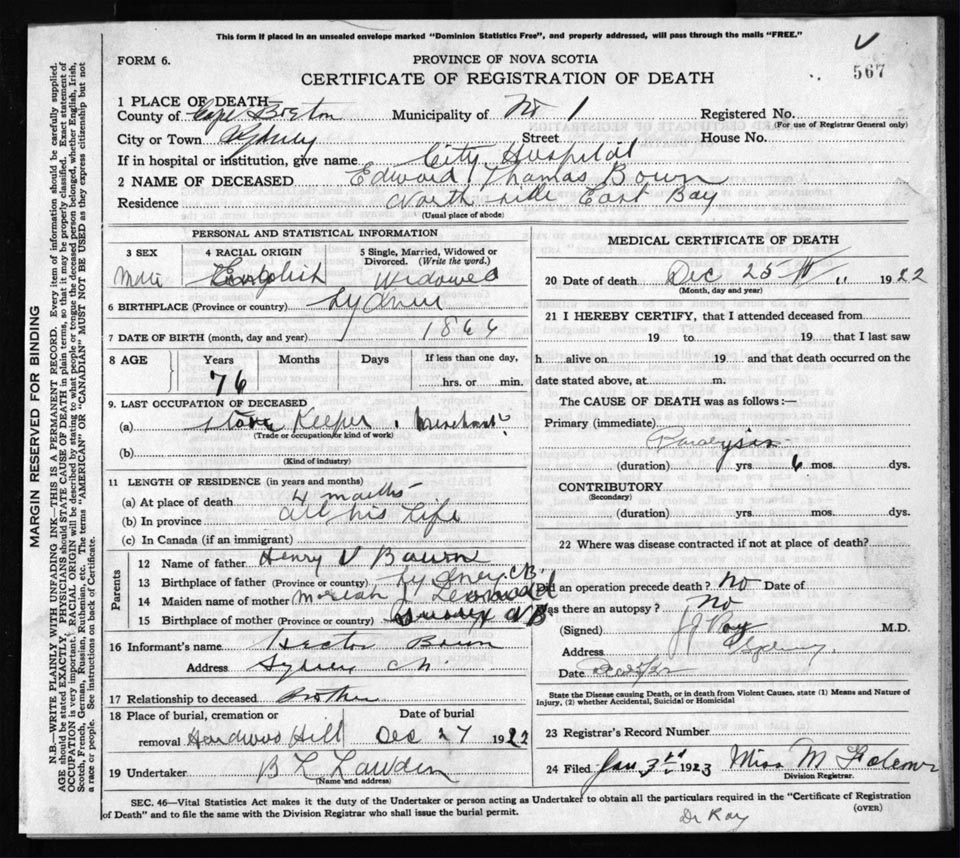 This form if placed in an unsealed envelope marked "Dominion Statistics Free", and properly addressed, will pass through the mails "FREE."
FORM 6.
PROVINCE OF NOVA SCOTIA
567
CERTIFICATE OF REGISTRATION OF DEATH
1 PLACE OF DEATH
County of Cape Breton Municipality of No 1 Registered No.
(For use of Registrar General only)
City or Town Sydney Street House No.
If in hospital or institution, give name City Hospital
2 NAME OF DECEASED Edward Thomas Bown
Residence North side East Bay
(Usual place of abode)
PERSONAL AND STATISTICAL INFORMATION
3 SEX 4 RACIAL ORIGIN 5 Single, Married, Widowed or Divorced. (Write the word.)
Male English Widowed
6 BIRTHPLACE (Province or country) Sydney
7 DATE OF BIRTH (month, day and year)
8 AGE Years Months Days If less than one day,
76 hrs. or min.
9. LAST OCCUPATION OF DECEASED
(a) Store Keeper. Merchant
(Trade or occupation or kind of work)
(b)
(Kind of industry)
11 LENGTH OF RESIDENCE (in years and months)
(a) At place of death 4 months
(b) In province all his Life
(c) In Canada (if an immigrant)
Parents
12 Name of father Henry V Bown
13 Birthplace of father (Province or country) Sydney CB.
14 Maiden name of mother
15 Birthplace of mother (Province or country)
16 Informant's name Hector Bown
Address Sydney
17 Relationship to deceased Brother
18 Place of burial, cremation or removal Hardwood Hill Date of burial Dec 27 1922
19 Undertaker
(Name and address)
MEDICAL CERTIFICATE OF DEATH
20 Date of death Dec 25th " 1922
(Month, day and year)
21 I HEREBY CERTIFY, that I attended deceased from
19 to 19 that I last saw
h alive on 19 and that death occurred on the
date stated above, at m.
The CAUSE OF DEATH was as follows:—
Primary (immediate)
Paralysis
(duration) yrs. 6 mos. dys.
CONTRIBUTORY
(Secondary)
(duration) yrs. mos. dys.
22 Where was disease contracted if not at place of death?
Did an operation precede death? No Date of
Was there an autopsy? No
(Signed) J J Roy M.D.
Address Sydney.
Date
State the Disease causing Death, or in death from Violent Causes, state (1) Means and Nature of
Injury, (2) whether Accidental, Suicidal or Homicidal
23 Registrar's Record Number
24 Filed Jan 3rd 1923 Miss M
Division Registrar.
SEC. 46—Vital Statistics Act makes it the duty of the Undertaker or person acting as Undertaker to obtain all the particulars required in the "Certificate of Registration
of Death" and to file the same with the Division Registrar who shall issue the burial permit.
(OVER)
Dr Roy
MARGIN RESERVED FOR BINDING
N.B.—WRITE PLAINLY WITH UNFADING INK—THIS IS A PERMANENT RECORD. Every item of information should be carefully supplied.
AGE should be stated EXACTLY. PHYSICIANS should STATE CAUSE OF DEATH in plain terms, so that it may be properly classified. Exact statement of
OCCUPATION is very important. RACIAL ORIGIN will be described by stating to what people or tongue the deceased person belonged, whether English, Irish,
Scotch, French, German, Russian, Ruthenian, etc. The terms "AMERICAN" OR "CANADIAN" MUST NOT BE USED as they express citizenship but not
a race or people. See instructions on back of Certificate.